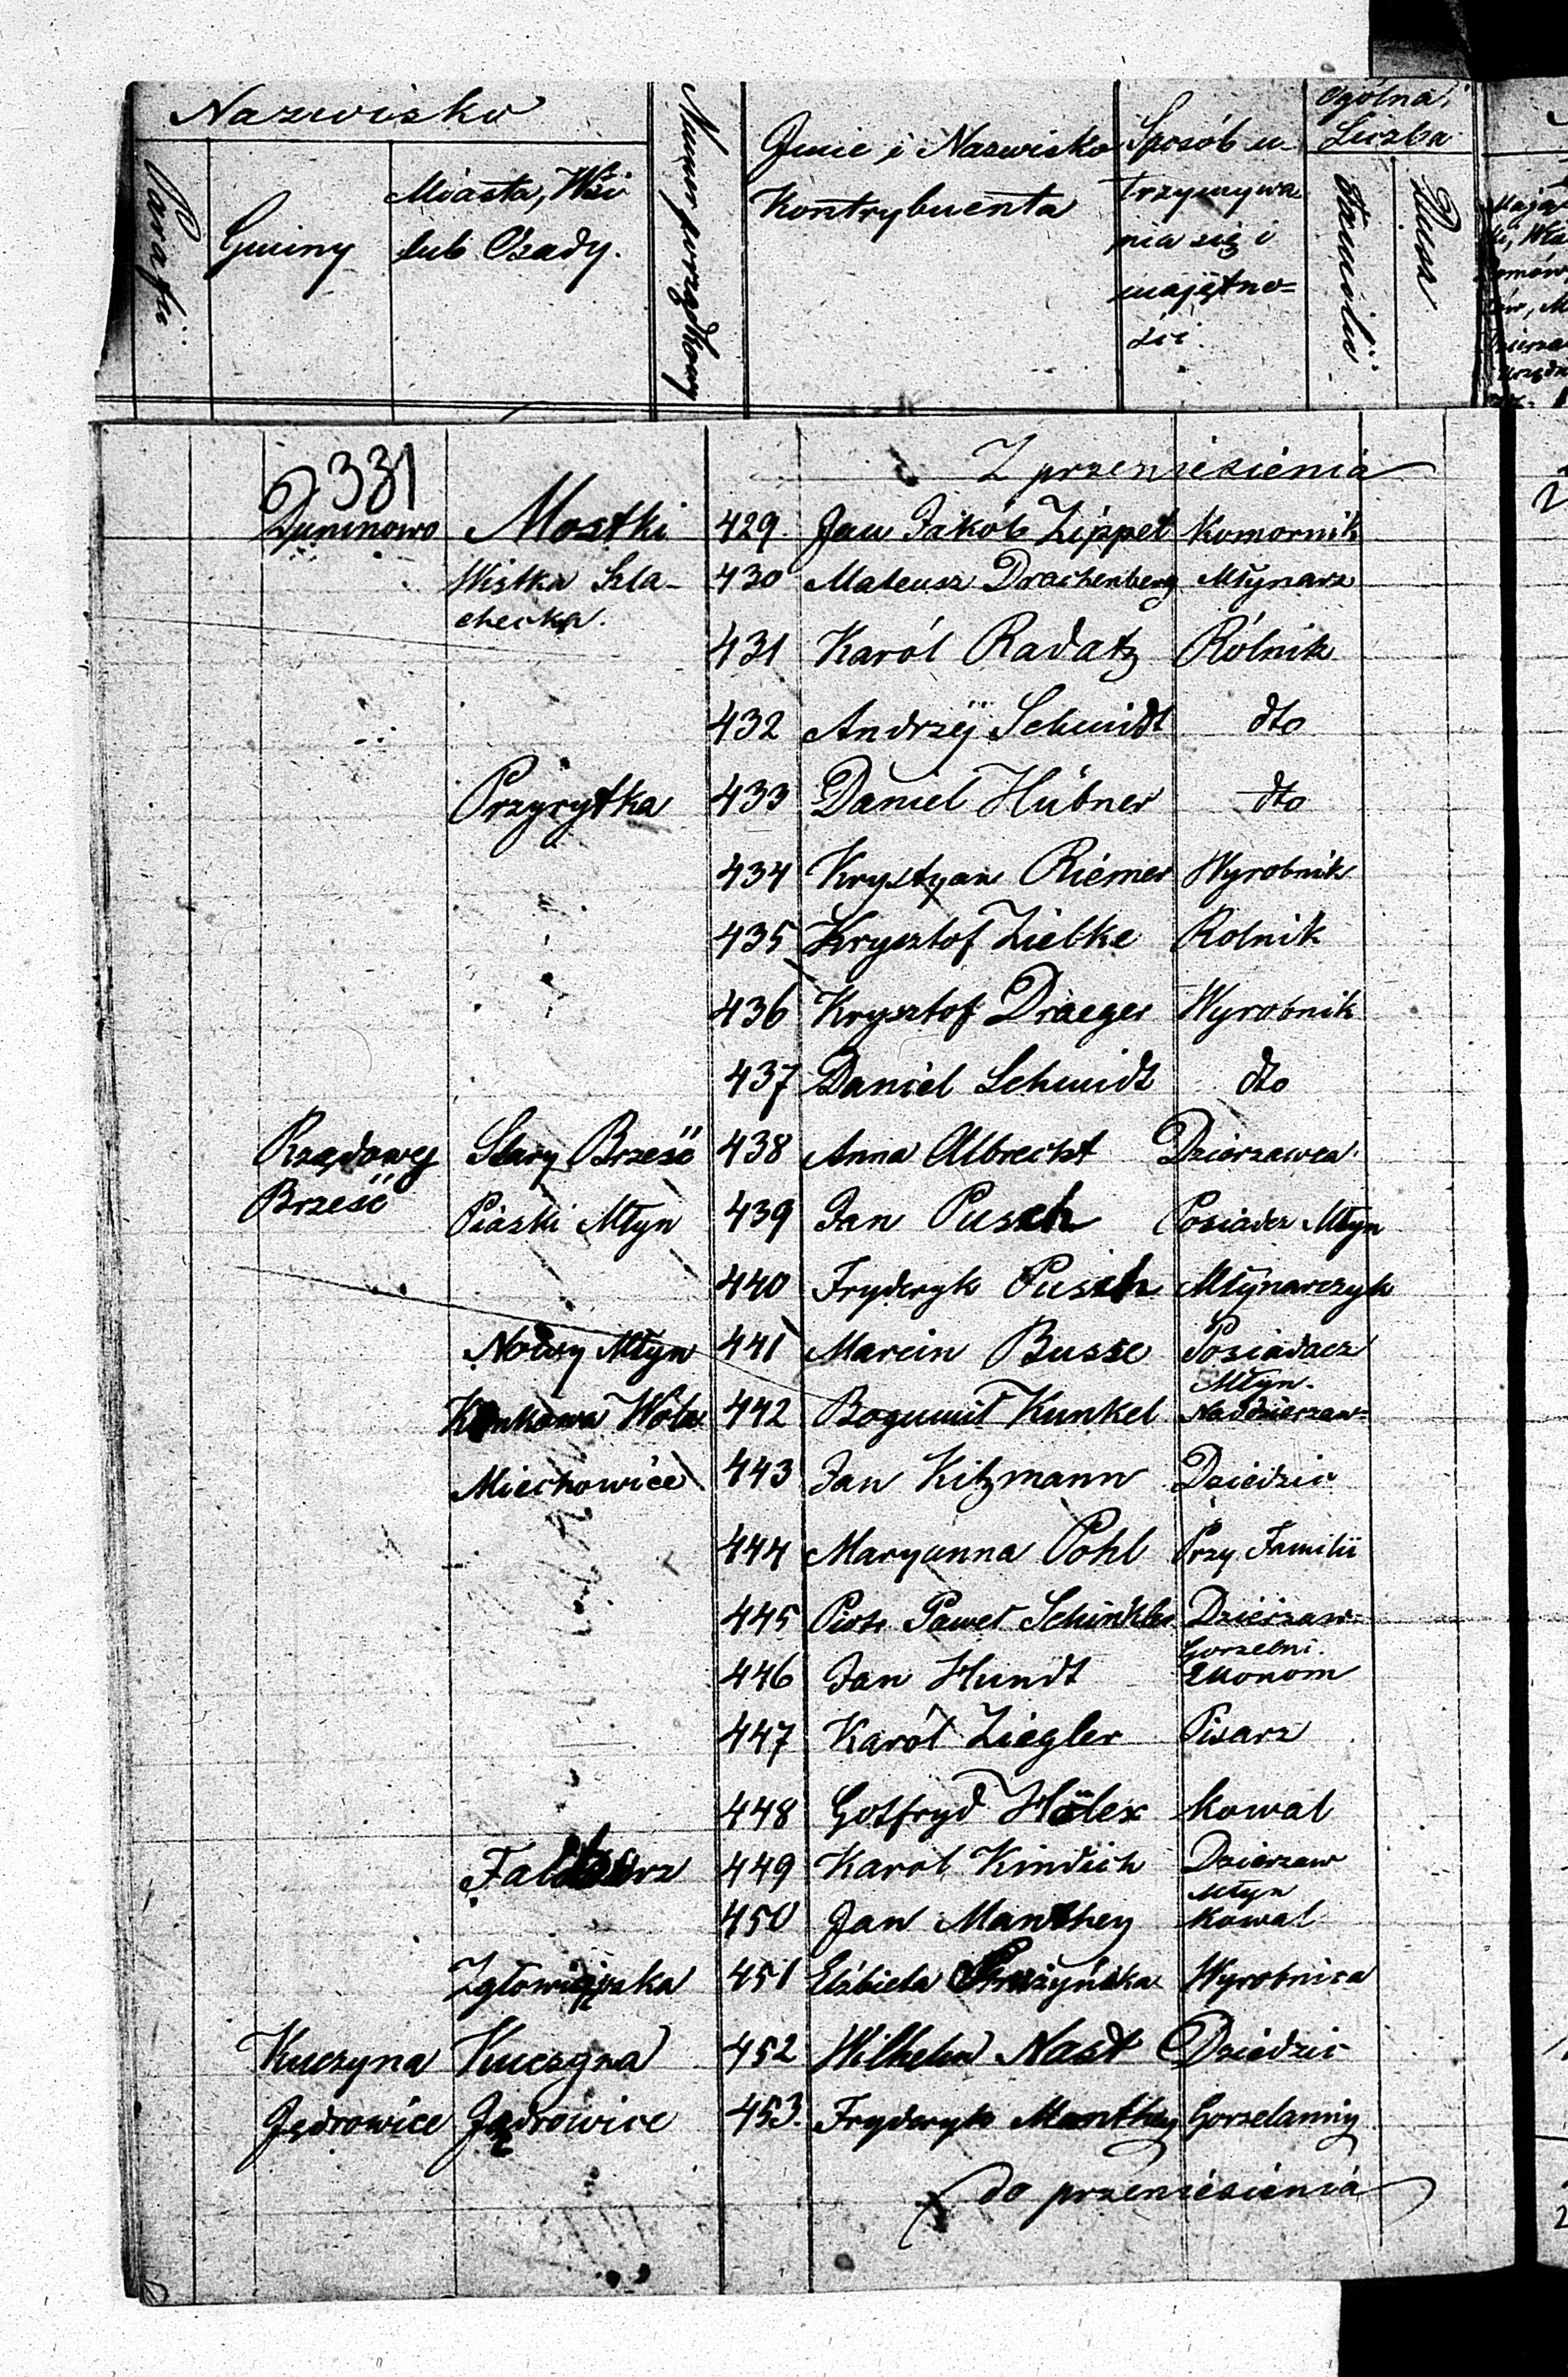 Nazwisko
Parafii
Gminy
Miasta, Wsi
lub Osady.
Numer porządkowy
Jmie i Nazwisko
Kontrybuenta
Sposób u-
trzymywa
nia się i
majętno=
ści.
Ogólna
Liczba
Familii
Dusz
331
Z przeniesienia
Duninowo Mostki 429. Jan Jakób Zippel Komornik
Wistka Szla- 430 Mateusz Drachenberg Młynarz
checka.
431 Karól Radatz Rólnik
432 Andrzéj Schmidt dto
Przyrytka 433 Daniel Hübner dto
434 Krystyan Riemer Wyrobnik
435 Krysztof Zielke Rolnik
436 Krysztof Draeger Wyrobnik
437 Daniel Schmidt dto
Rządowej Stary Brześć 438 Anna Albrecht Dzierzawca
Brześć Piaski Młyn 439 Jan Pusch Posiadcz Młyn
440 Fryderyk Pusch Młynarczyk
Nowy Młyn 441 Marcin Busse Posiadacz
Młyn.
Kunkowa Wola 442 Bogumił Kunkel Naddzierzaw=
Miechowice 443 Jan Kitzmann Dziedzic
444 Maryanna Pohl Przy Familii
445 Piotr Paweł Schinkler Dzierzaw=
Gorzelni.
446 Jan Hundt Ekonom
447 Karól Ziegler Pisarz
448 Gotfryd Kowal
449 Karol Kindich Dzierzaw
Młyn
450 Jan Manthey Kowal
Zgłowiączka 451 Elżbieta Wyrobnica
Kuczyna Kuczyna 452 Wilhelm Nast Dziedzic
Jędrowice Jędrowice 453. Fryderyk Manthey Gorzelanny
do przeniesienia